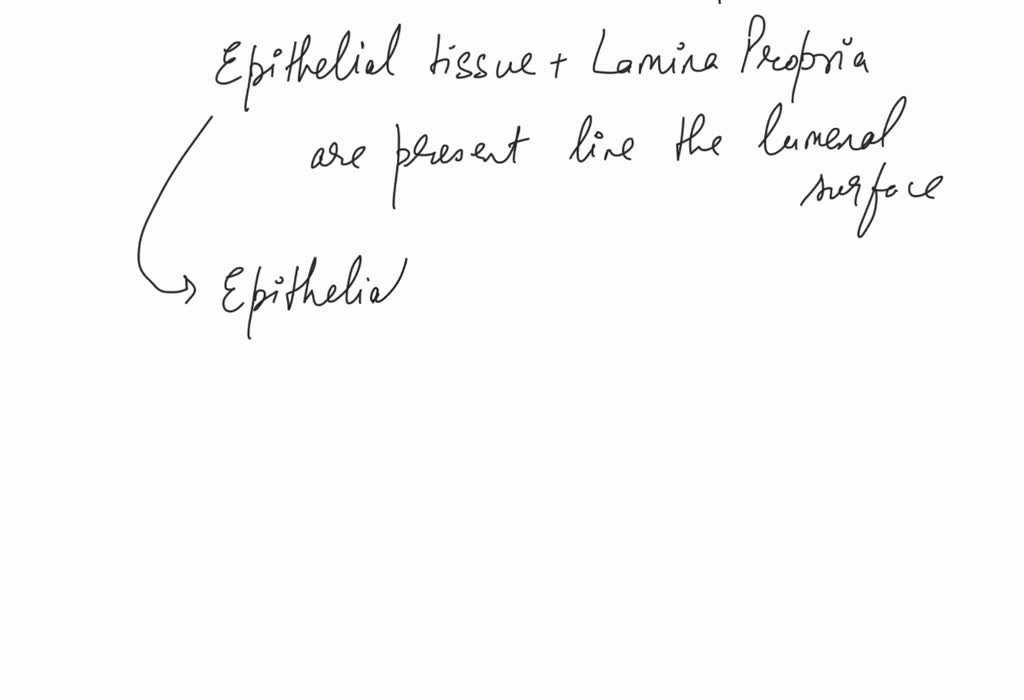 Epithelial tissue + Lamina Propria
are present line the lumenal
surface
→ Epithelia